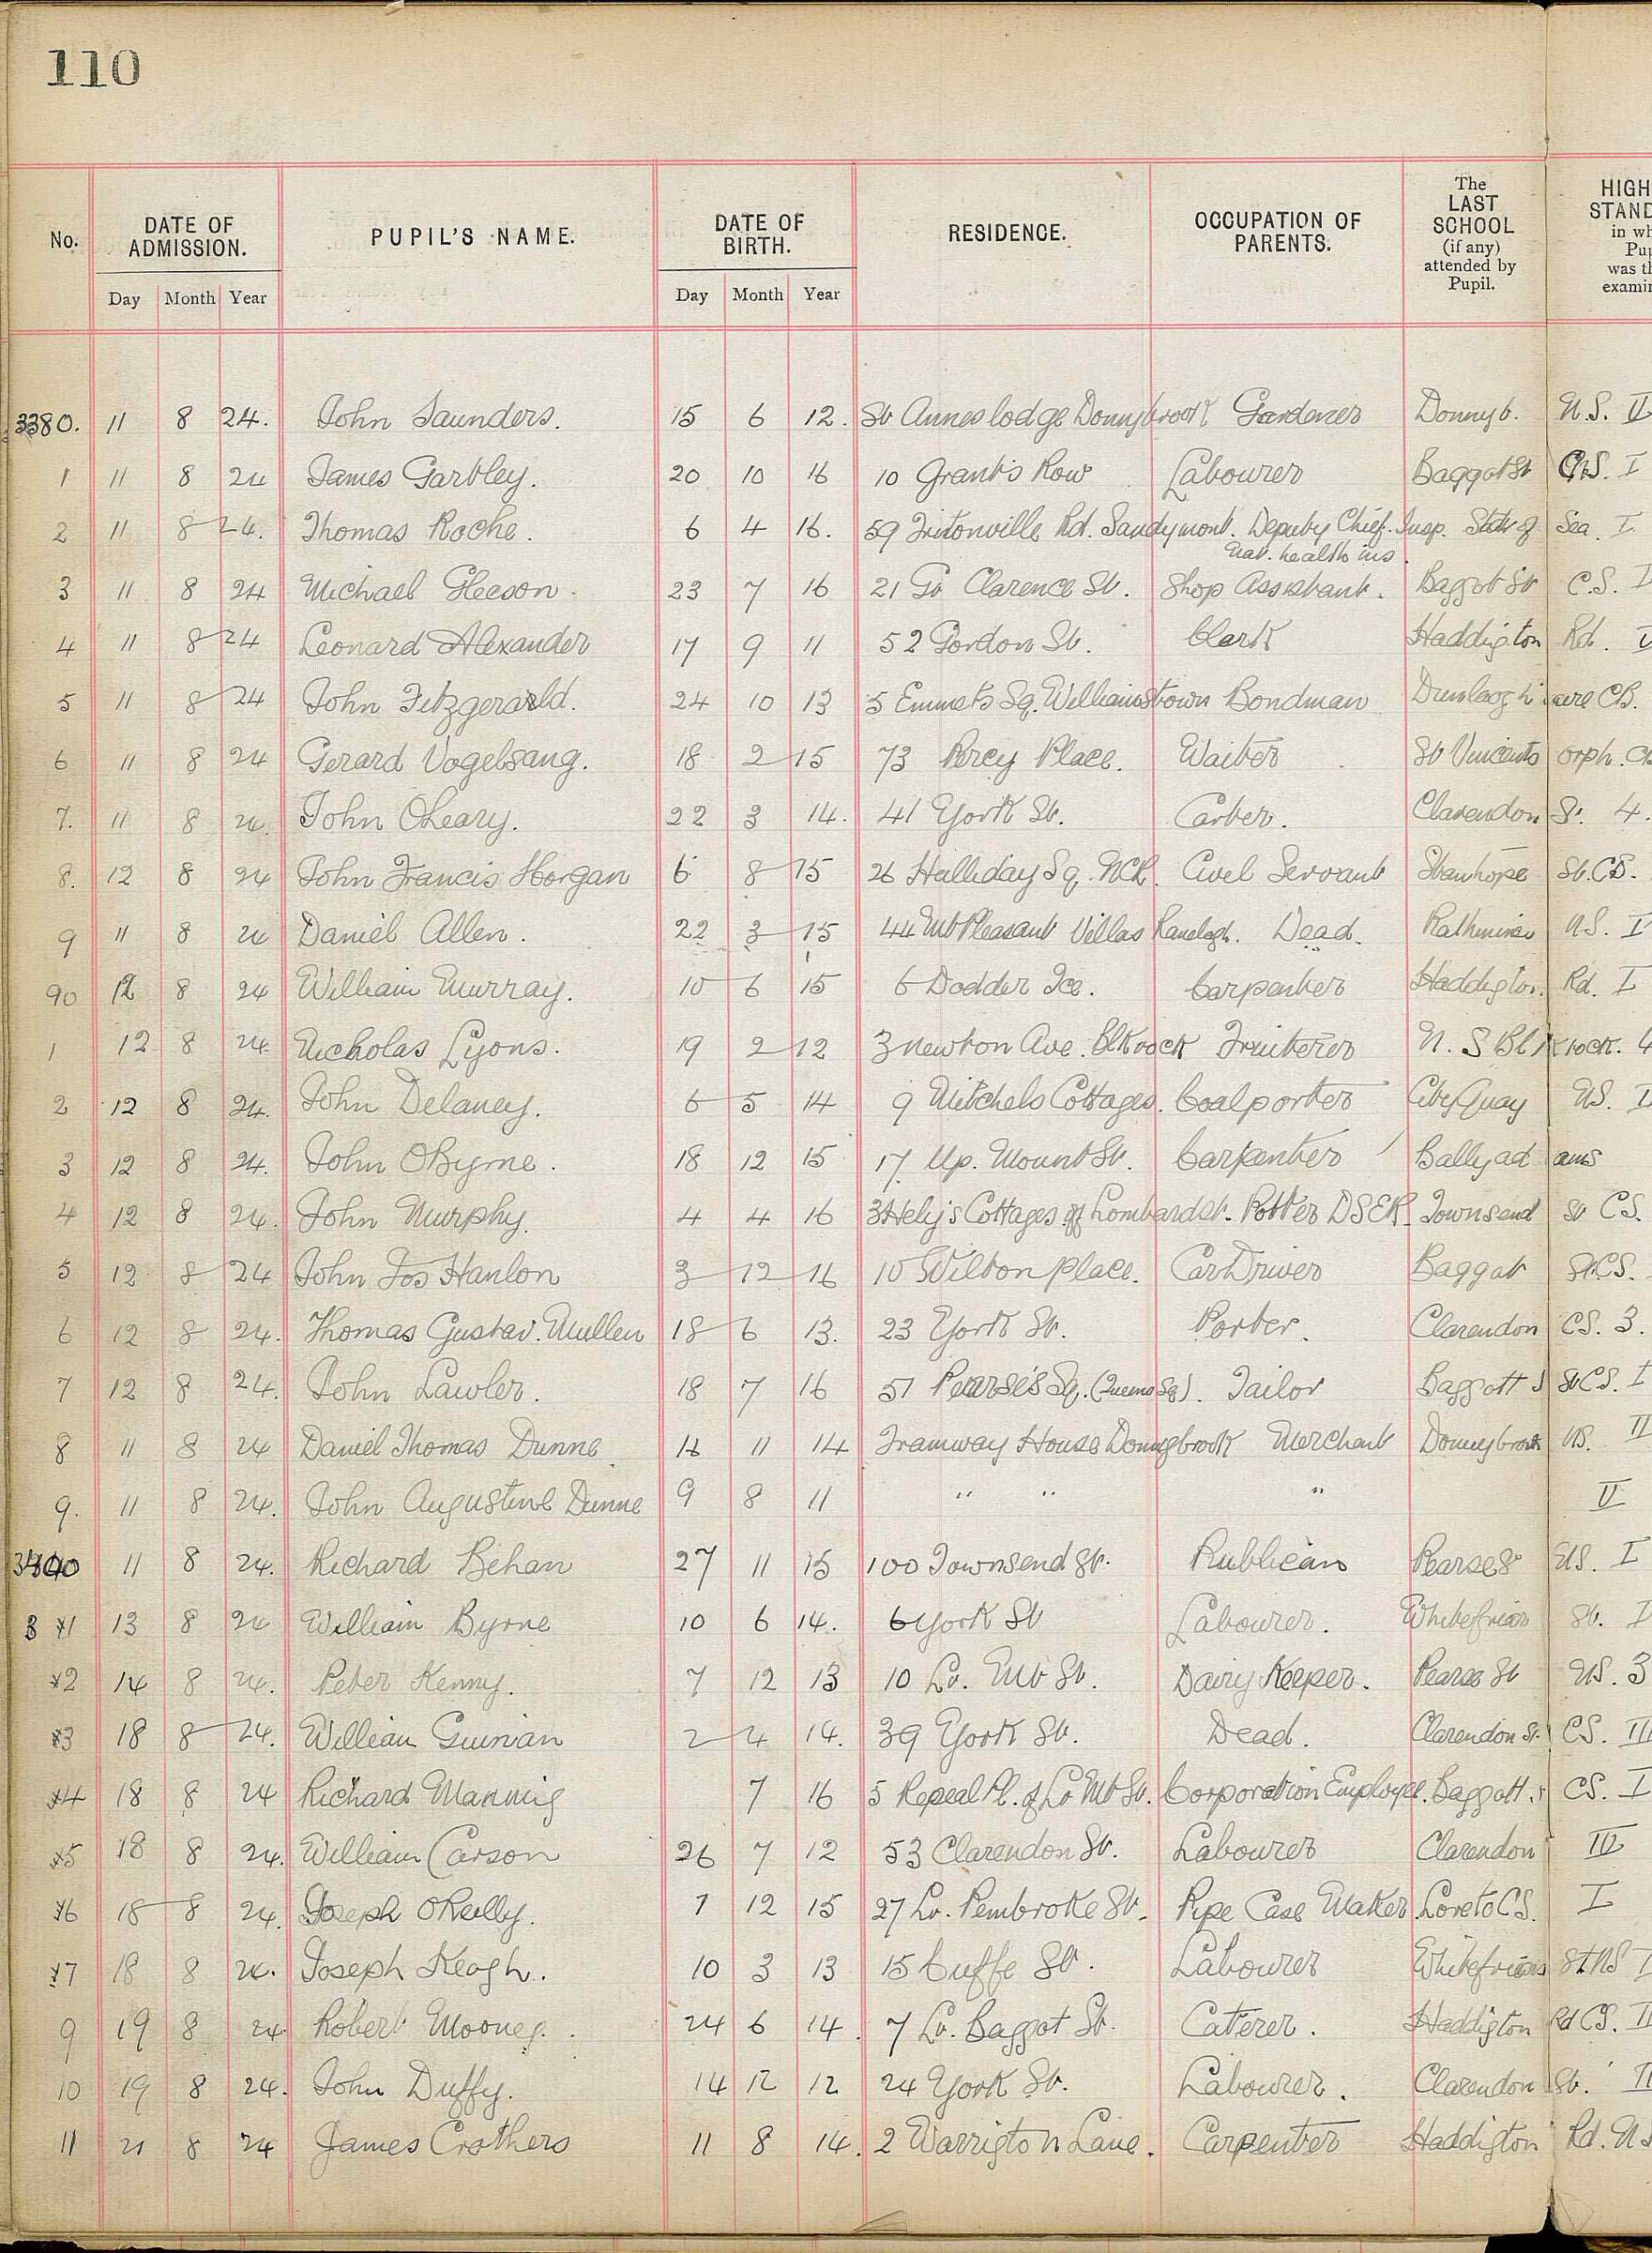 110
No. DATE OF ADMISSION. PUPIL'S NAME. DATE OF BIRTH. RESIDENCE. OCCUPATION OF PARENTS. The LAST SCHOOL (if any) attended by Pupil. HIGH STAND in wh Pup was th examin
Day Month Year Day Month Year
3380. 11 8 24. John Saunders. 15 6 12. St Annes lodge Donnybrook Gardener Donnyb. N.S. II
1 11 8 24 James Gartley. 20 10 16 10 Grant's Row Labourer Baggot St C.S. I
2 11 8 24. Thomas Roche. 6 4 16. 59 Tritonville Rd. Sandymount. Deputy Chief. Insp. Star of Sea. I
Nat. health ins.
3 11 8 24 Michael Gleeson. 23 7 16 21 Gt Clarence St. Shop Assistant. Baggot St C.S. I
4 11 8 24 Leonard Alexander 17 9 11 52 Gordon St. Clerk Haddington Rd. V
5 11 8 24 John Fitzgerald. 24 10 13 5 Emmet's Sq. Williamstown Bondman Dunlaogh aire CB.
6 11 8 24 Gerard Vogelsang. 18 2 15 73 Percy Place. Waiter St Vincents Orph. CB
7. 11 8 24. John OLeary. 22 3 14. 41 York St. Carter. Clarendon St. 4.
8. 12 8 24 John Francis Horgan 6 8 15 26 Halliday Sq. NCR. Civil Servant Stanhope St. CB.
9 11 8 24 Daniel Allen. 22 3 15 44 Mt Pleasant Villas Ranelagh. Dead. Rathmines N.S. I
90 12 8 24 William Murray. 10 6 15 6 Dodder Tce. Carpenter Haddington Rd. I
1 12 8 24 Nicholas Lyons. 19 2 12 3 newton Ave. Blkrock Fruiterer N. S Blkrock. 4
2 12 8 24. John Delaney. 6 5 14 9 Mitchels Cottages. Coalporter City Quay NS. I
3 12 8 24. John OByrne. 18 12 15 17 Up. Mount St. Carpenter Ballyadams
4 12 8 24. John Murphy. 4 4 16 3 Hely's Cottages off Lombard st. Porter DSER. Townsend St CS.
5 12 8 24 John Jos Hanlon 3 12 16 10 Wilton place. Car Driver Baggot St. CS.
6 12 8 24. Thomas Gustav. Mullen 18 6 13. 23 York St. Porter. Clarendon CS. 3.
7 12 8 24. John Lawler. 18 7 16 51 Pearse's Sq. (Queens Sq). Tailor Baggott S St CS. I
8 11 8 24 Daniel Thomas Dunne. 16 11 14 Tramway House Donnybrook Merchant Donnybrook NS. II
9. 11 8 24. John Augustine Dunne 9 8 11 " " " V
3400 11 8 24. Richard Behan 27 11 15 100 Townsend St. Publican Pearse St NS. I
1 13 8 24 William Byrne 10 6 14. 6 York St Labourer. Whitefriar St. I
2 14 8 24. Peter Kenny. 7 12 13 10 Lr. Mt St. Dairy Keeper. Pearse St NS. 3
3 18 8 24. William Guinan 2 4 14. 39 York St. Dead. Clarendon St. CS. III
4 18 8 24 Richard Mannig 7 16 5 Repeal Pl. off Lr Mt St. Corporation Employee. Baggott St CS. I
5 18 8 24. William Carson 26 7 12 53 Clarendon St. Labourer Clarendon III
6 18 8 24. Joseph OReilly. 7 12 15 27 Lr. Pembroke St. Pipe Case Maker. Loreto CS. I
7 18 8 24. Joseph Keogh. 10 3 13 15 Cuffe St. Labourer Whitefriars St NS I
9 19 8 24 Robert Mooney. 24 6 14. 7 Lr. Baggot St. Caterer. Haddigton Rd CS. II
10 19 8 24. John Duffy. 14 12 12 24 York St. Labourer. Clarendon St. II
11 21 8 24 James Crothers 11 8 14. 2 Warrigton Lane. Carpenter Haddigton Rd. NS